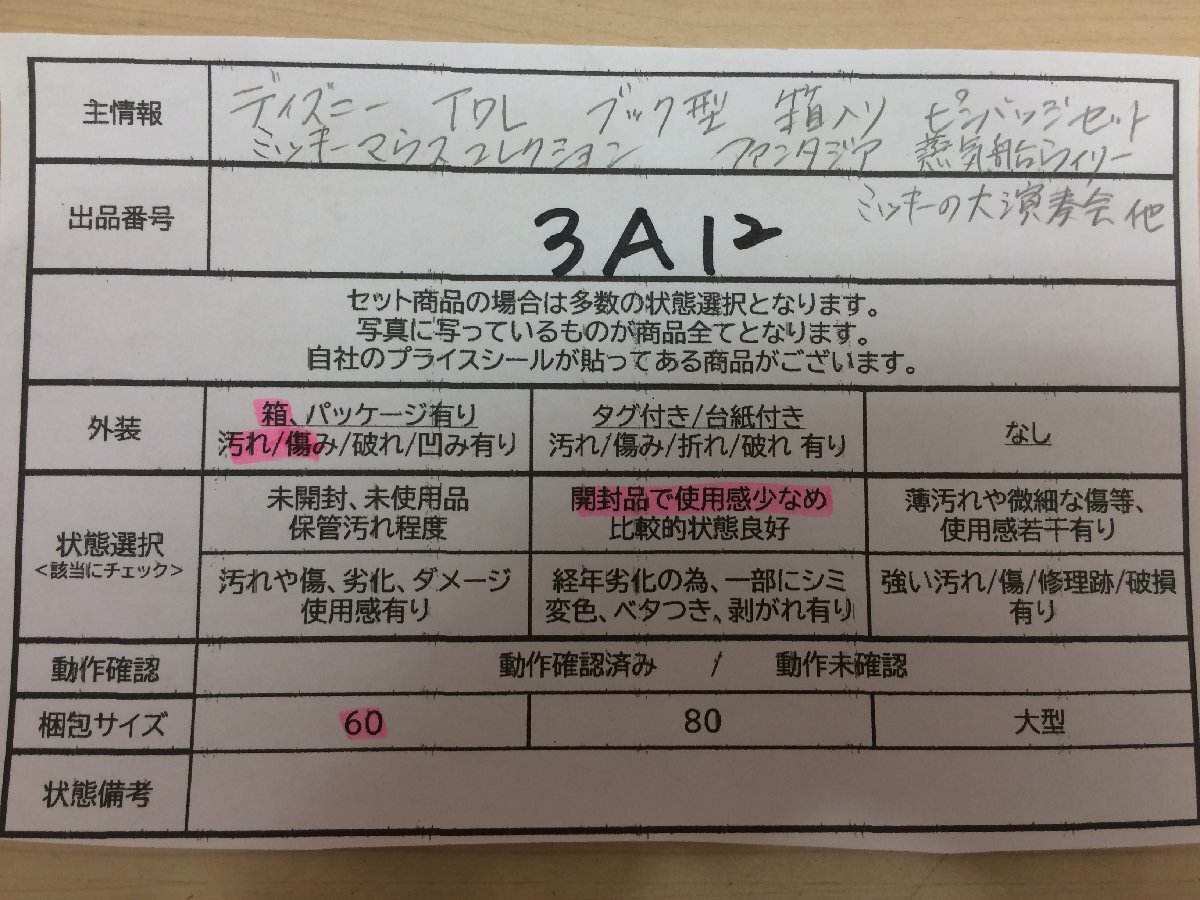 主情報
ディズニー イワレ ブック型 箱入り ピンバッジセット
ミッキーマウスコレクション ファンタジア 蒸気船ウィリー
ミッキーの大演奏会 他
出品番号
3A12
セット商品の場合は多数の状態選択となります。
写真に写っているものが商品全てとなります。
自社のプライスシールが貼ってある商品がございます。
外装
箱、パッケージ有り
汚れ/傷み/破れ/凹み有り
タグ付き/台紙付き
汚れ/傷み/折れ/破れ 有り
なし
状態選択
<該当にチェック>
未開封、未使用品
保管汚れ程度
開封品で使用感少なめ
比較的状態良好
薄汚れや微細な傷等、
使用感若干有り
汚れや傷、劣化、ダメージ
使用感有り
経年劣化の為、一部にシミ
変色、ベタつき、剥がれ有り
強い汚れ/傷/修理跡/破損
有り
動作確認
動作確認済み / 動作未確認
梱包サイズ
60
80
大型
状態備考